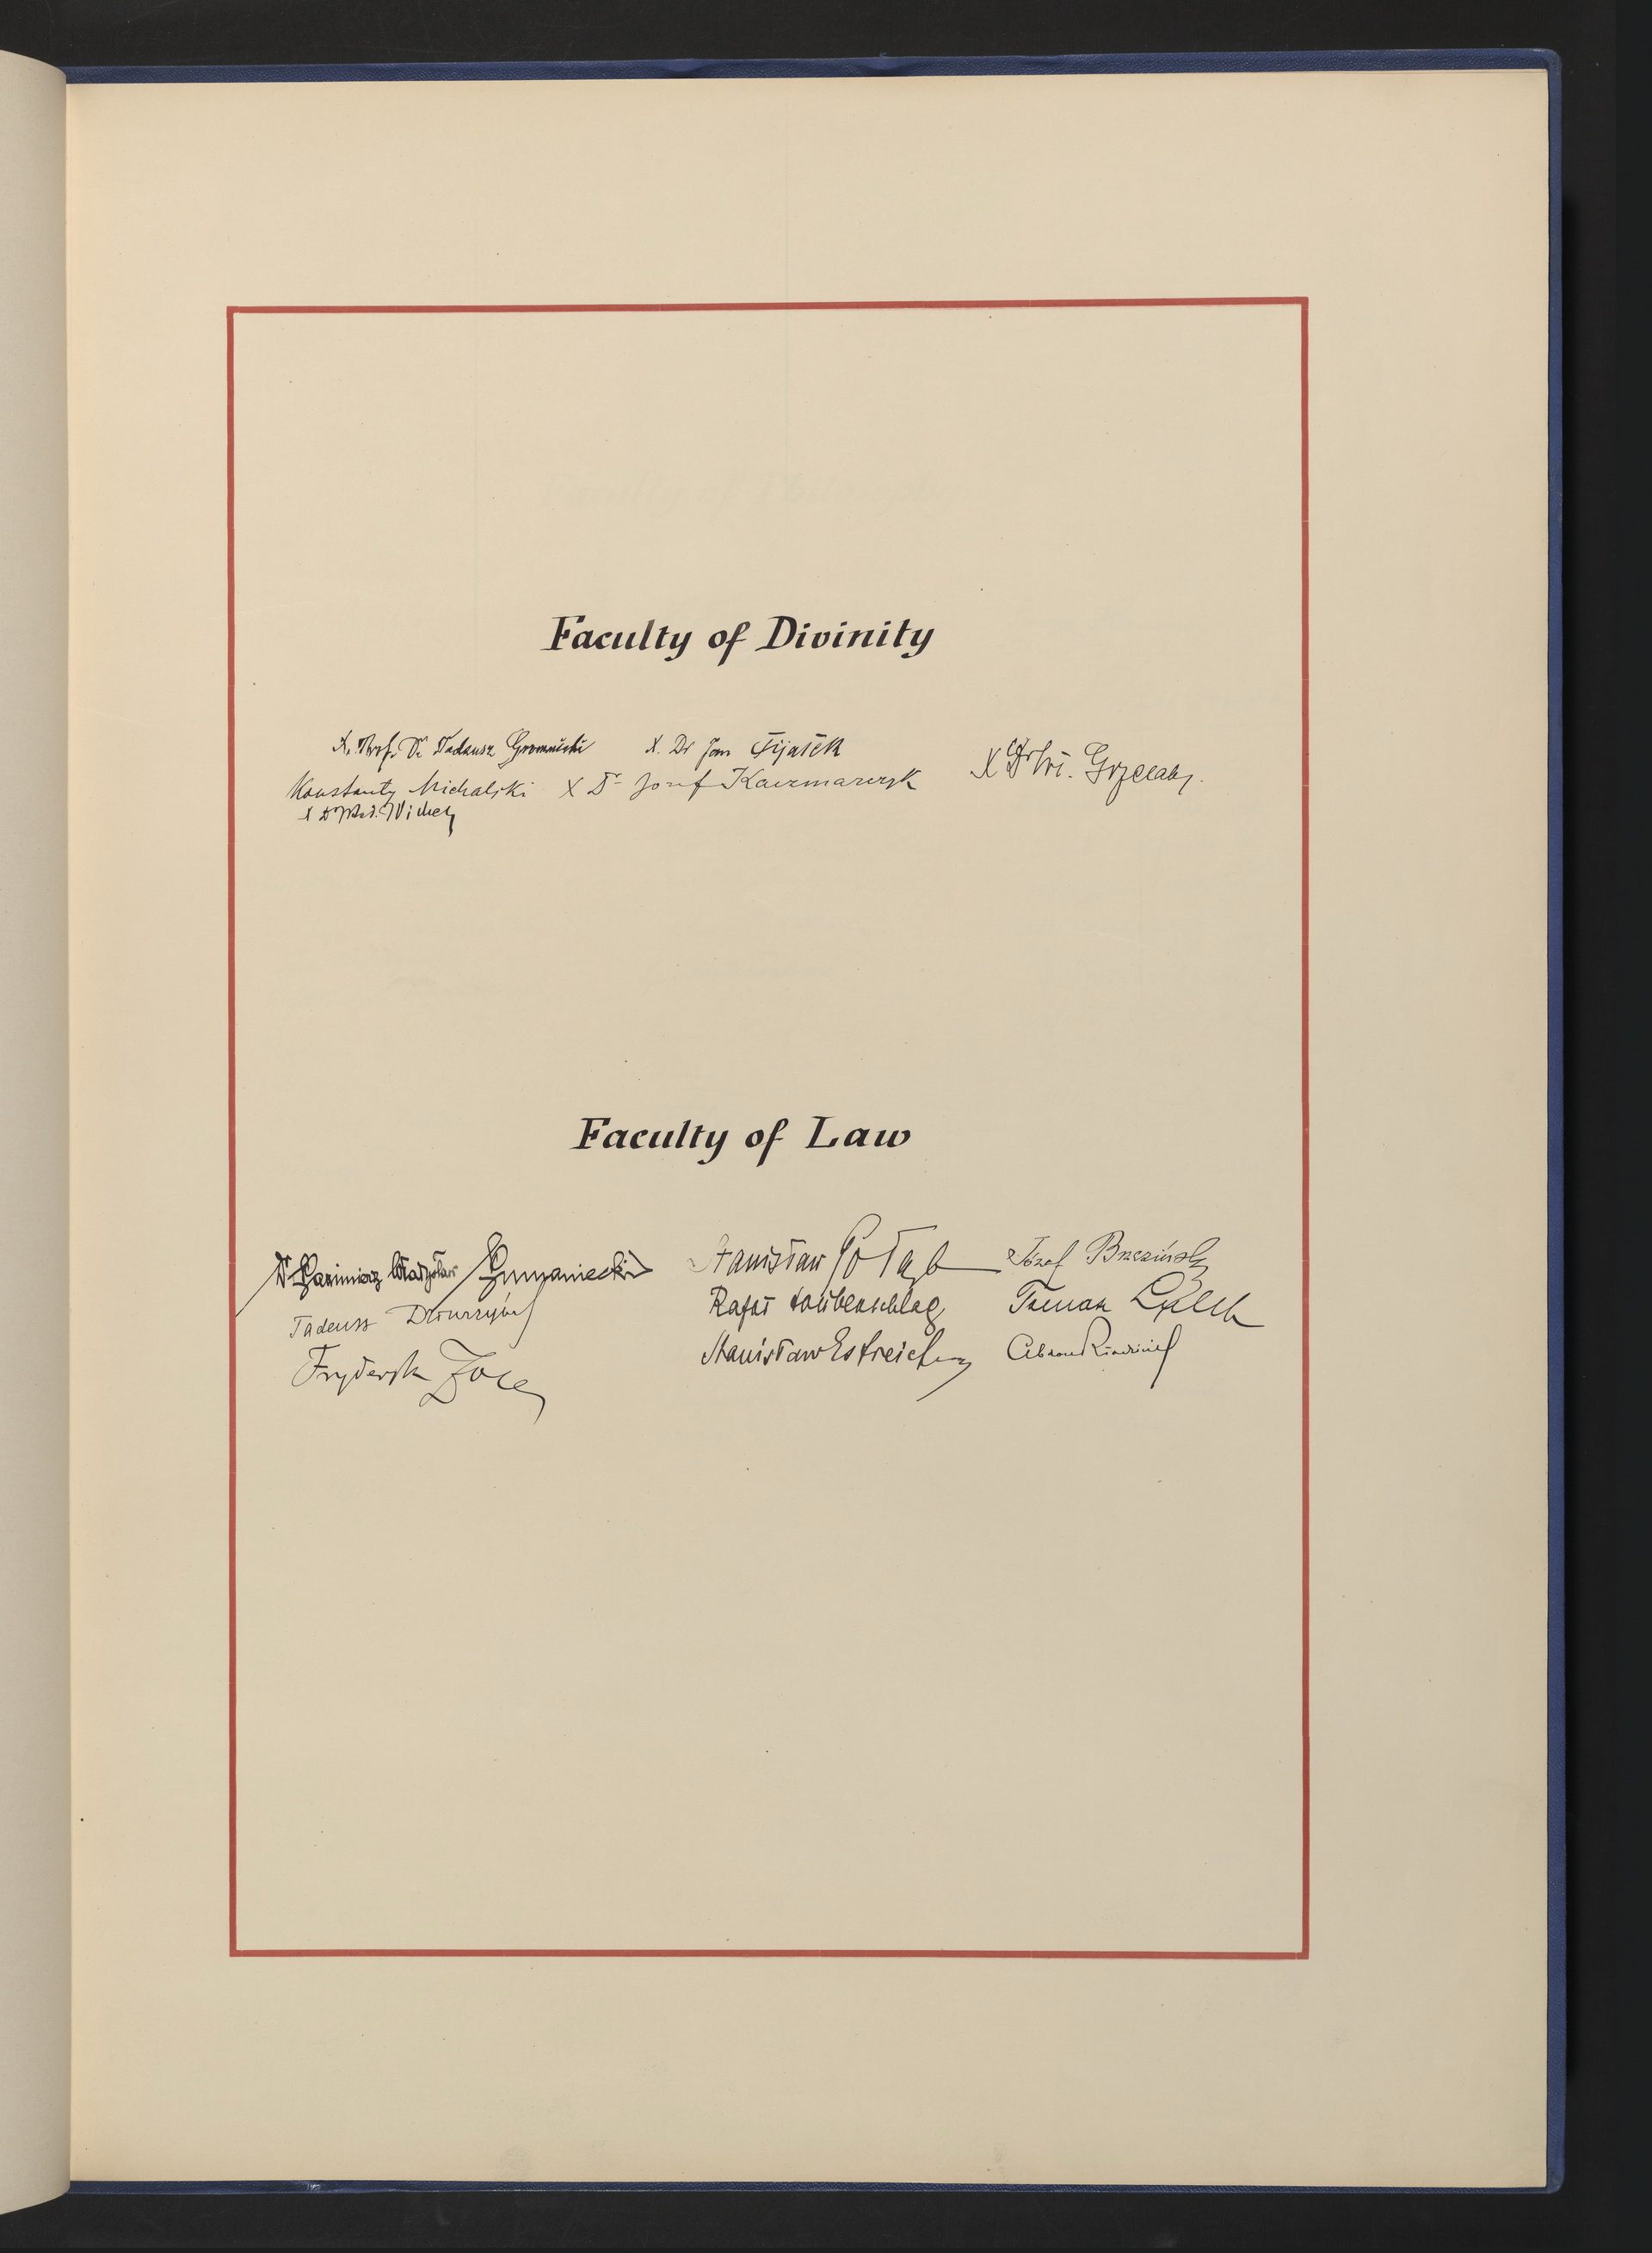 Faculty of Divinity
X. Prof. Dr. Tadeusz Gromnicki X. Dr Jan Fijałek
Konstanty Michalski X Dr Józef Kaczmarczyk X Dr
X Dr Wład. Wicher
Faculty of Law
Dr Kazimierz Władysław Kumaniecki Stanisław Gołąb Józef Brzeziński
Tadeusz Dziurzyński Rafał Taubenschlag
Fryderyk Zoll Stanisław Estreicher